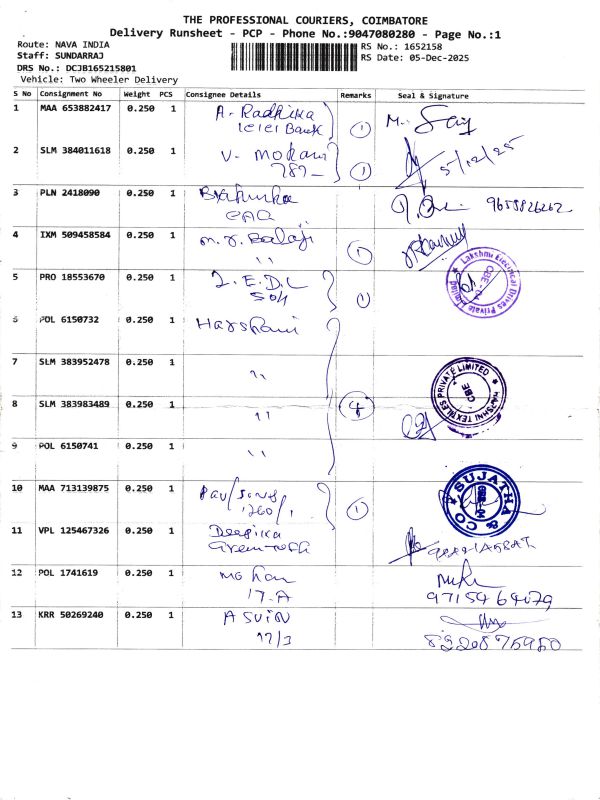 THE PROFESSIONAL COURIERS, COIMBATORE
Delivery Runsheet - PCP - Phone No.:9047080280 - Page No.:1
Route: NAVA INDIA
Staff: SUNDARRAJ
DRS No.: DCJB165215801
Vehicle: Two Wheeler Delivery
RS No.: 1652158
RS Date: 05-Dec-2025
S No Consignment No Weight PCS Consignee Details Remarks Seal & Signature
1 MAA 653882417 0.250 1 A. Radhika
Bank 1
2 SLM 384011618 0.250 1 V. Mohan 1
787 5/12/25
3 PLN 2418090 0.250 1
4 IXM 509458584 0.250 1 M. r. Balaji 1
"
Lakshmi Electrical Drives Private Limited
CBE
5 PRO 18553670 0.250 1 L.E.D.L 1
504
6 POL 6150732 0.250 1 Harshani
7 SLM 383952478 0.250 1 "
HARSHNI TEXTILES PRIVATE LIMITED
CBE
8 SLM 383983489 0.250 1 " 4
9 POL 6150741 0.250 1 "
10 MAA 713139875 0.250 1 1
SUJATHA & CO
11 VPL 125467326 0.250 1 Deepika
12 POL 1741619 0.250 1 Mohan
17-A 9715464079
13 KRR 50269240 0.250 1 ASUIN
17/3